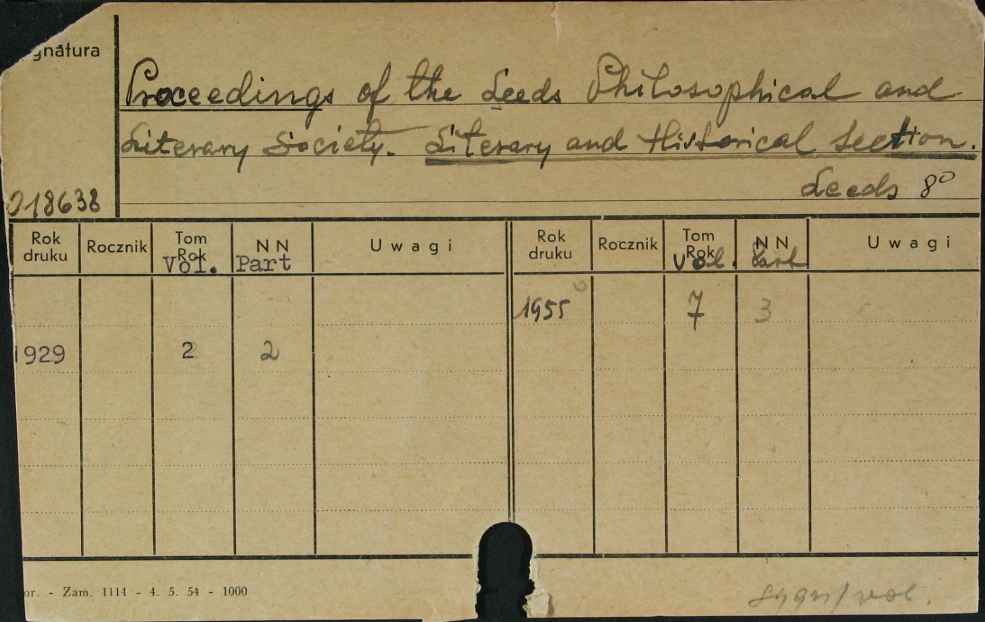 gnatura
Proceedings of the Leeds Philosophical and
Literary Society. Literary and Historical section.
Leeds 8°
018638
Rok druku Rocznik Tom Rok Vol. N N Part Uwagi Rok druku Rocznik Tom Rok Vol. N N Part Uwagi
1955 7 3
1929 2 2
or. - Zam. 1111 - 4. 5. 54 - 1000